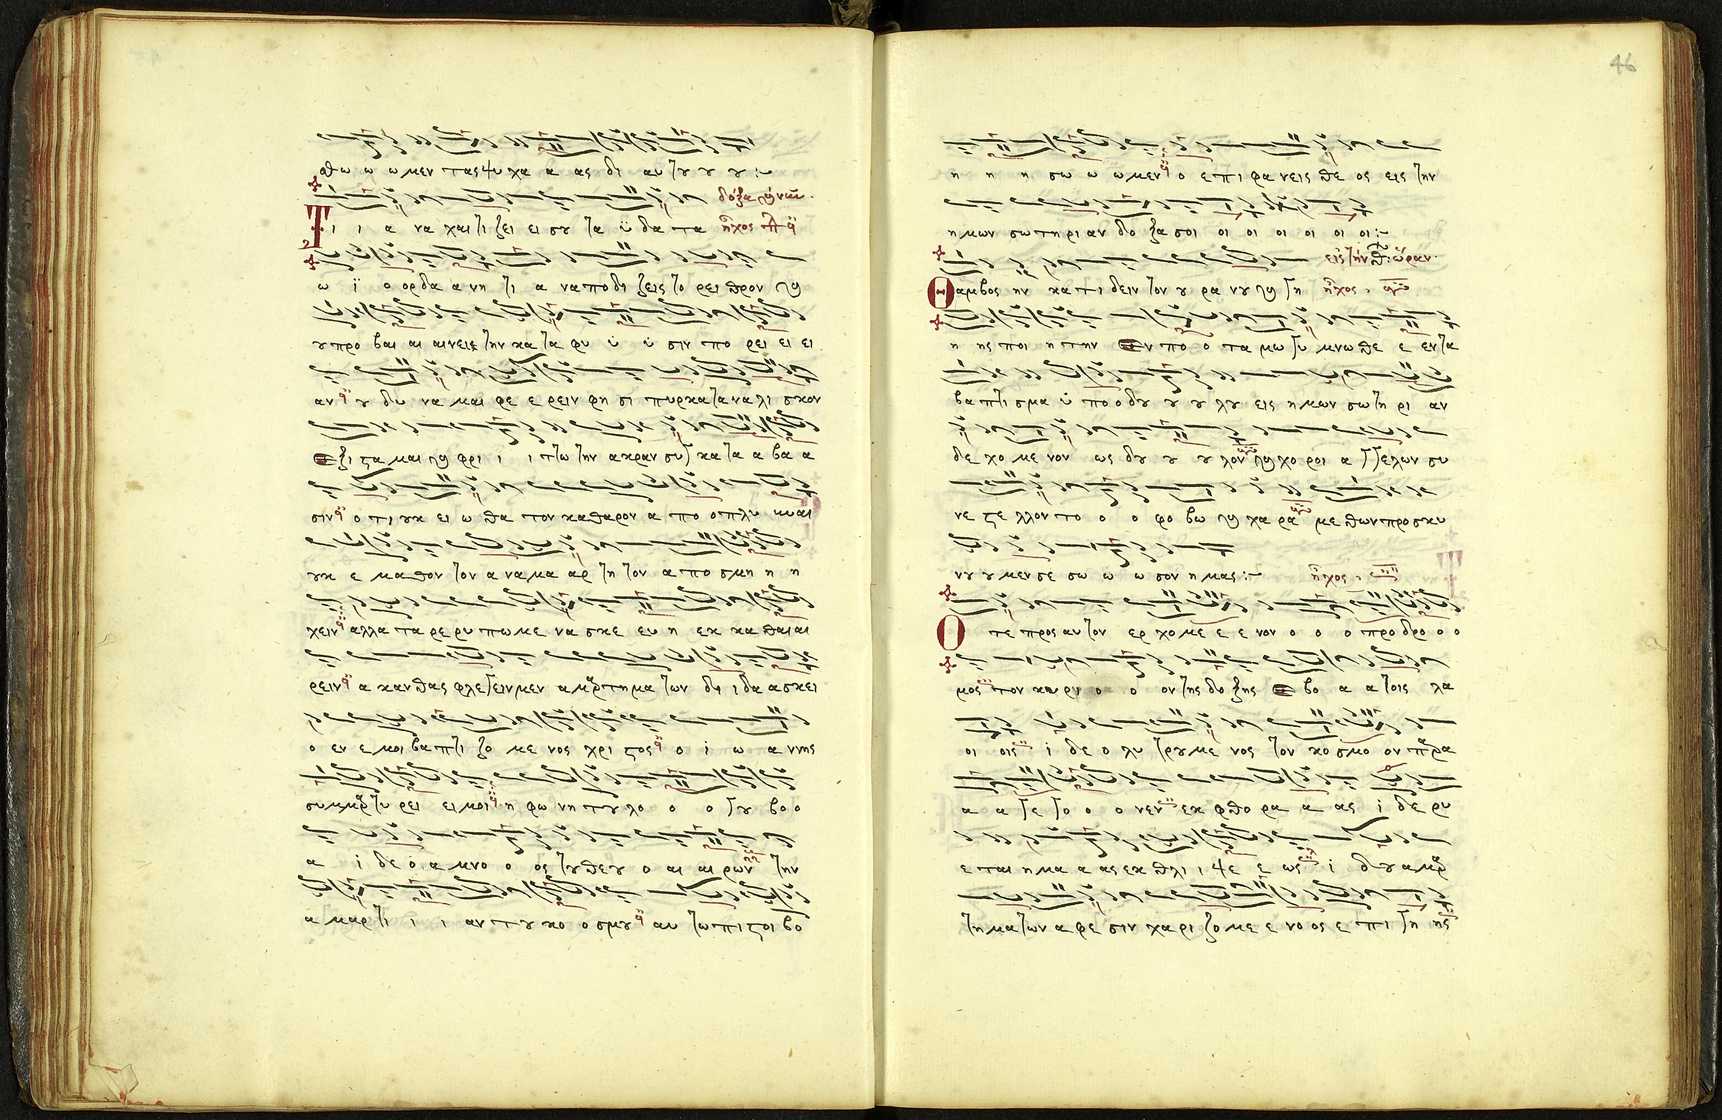 θω ω ω μεν τας ψυ χα α ας δι αυ του ου ου :~
δόξα καὶ νῦν.
Τι ι α να χαι τι ζει ει σου τα ὕ δα τα ἦχος
ω ϊ ο ορ δα α νη τι α να πο δι ζεις το ρει θρον και
ου προ βαι αι αι νεις την κα τα φυ ὑ ὑ σιν πο ρει ει ει
αν ου δυ να μαι φε ε ρειν φη σι πυρ κα τα να λι σκον
εξι στα μαι και φρι ι ι ττω την ακραν συγ κα τα α βα α
σιν ο τι ουκ ει ω θα τον κα θα ρον α πο ο πλυ υναι
ουκ ε μα θον τον α να μα αρ τη τον α πο σμη η η
χειν αλλα τα ρε ρυ πω με να σκε ευ η εκ κα θαι αι
ρειν α καν θας φλε γειν μεν α μαρτη μα των δι ι δα α σκει
ο εν ε μοι βα πτι ζο με νος χρι στος ο ι ω α ννης
συμ μαρ τυ ρει ει μοι η φω νη του λο ο ο γου βο ο
α ι δε ὁ α μνο ο ος του θεου ο αι αι ρων την
α μαρ τι ι ι αν του κο ο σμου αυ τω πι στοι βο
46
η η η σω ω ω μεν ο ε πι φα νεις θε ος εις την
η μων σω τη ρι αν δο ξα σοι οι οι οι οι οι οι :~
εἰς τὴν θ΄ ὥραν.
Θαμβος ην κα τι δειν τον ου ρα νου και γη ἦχος
η ης ποι η την εν πο ο τα μω γυ μνω θε ε εν τα
βα πτι σμα ὑ πο ο δου ου ου λου εις η μων σω τη ρι αν
δε χο με νον ως δου ου ου λον και χο ροι α γγε λων συ
νε στε λλον το ο ο φο βω και χα ρα με θων προ σκυ
νου ου μεν σε σω ω ω σον η μας :~ ἦχος
Ο τε προς αυ τον ερ χο με ε ε νον ο ο ο προ δρο ο ο
μος τον κυ ρι ο ο ον της δο ξης ε βο α α τοις λα
οι οις ι δε ο λυ τρου με νος τον κο σμο ον πα ρα
α α γε γο ο ο νεν εκ φθο ρα α ας ι δε ρυ
ε ται η μα α ας εκ θλι ι ψε ε ως ι δου α μαρ
τη μα των α φε σιν χα ρι ζο με ε νο ος ε πι γη ης